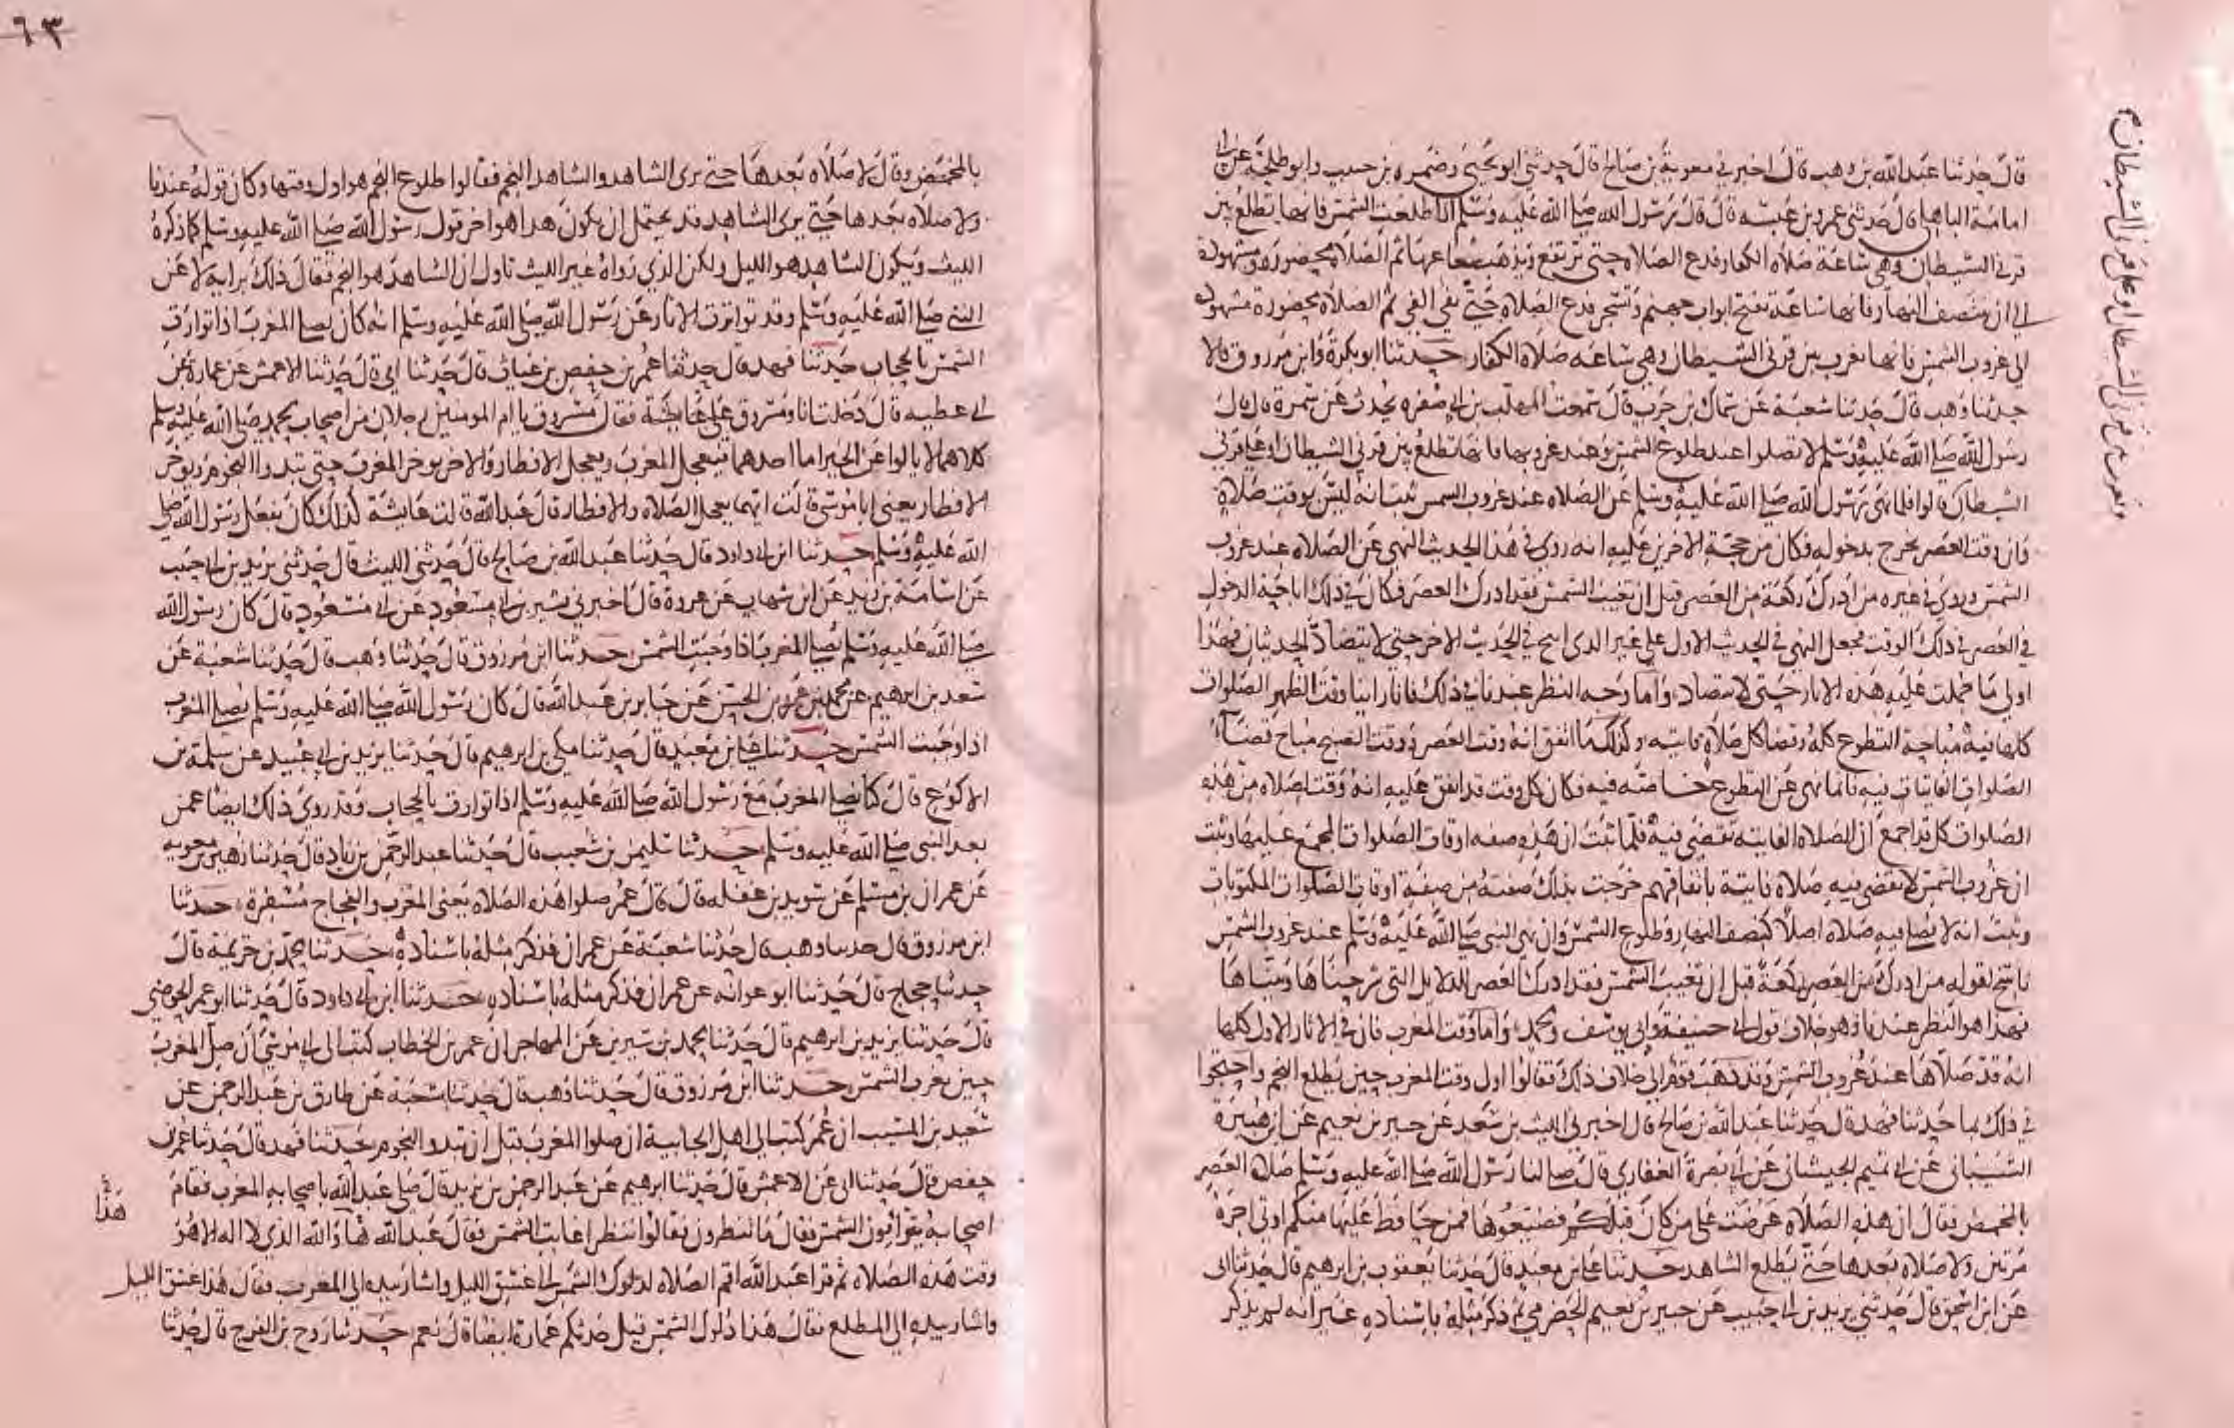 قال حدثنا عبد الله بن وهب قال اخبرني معوية بن صالح قال حدثني ابو يحيى وضميره بن حبيب وابو طلحة عن ابي
امامة الباهلي قال حدثني عمرو بن عبسة قال قال رسول الله صلى الله عليه وسلم اذا طلعت الشمس فانها تطلع بين
قرني الشيطان وهي ساعة صلاة الكفار فدع الصلاة حتى ترتفع ويذهب شعاعها ثم الصلاة محضورة ومشهودة
الى ان ينتصف النهار فانها ساعة تفتح ابواب جهنم وتسجر فدع الصلاة حتى يفي الفي ثم الصلاة محضورة مشهودة
الى غروب الشمس فانها تغرب بين قرني الشيطان وهي ساعة صلاة الكفار حدثنا ابو بكرة وابن مرزوق قالا
حدثنا وهب قال حدثنا شعبة عن سماك بن حرب قال سمعت المهلب بن ابي صفره يحدث عن سمرة قال قال
رسول الله صلى الله عليه وسلم لا تصلوا عند طلوع الشمس وعند غروبها فانها تطلع بين قرني الشيطان وعلى قرني
الشيطان قالوا فلما نهى رسول الله صلى الله عليه وسلم عن الصلاه عند غروب الشمس ثبت انه ليس بوقت صلاة
وان وقت العصر يخرج بدخوله فكان من حجة الاخرين عليه انه روى في هذا الحديث النهي عن الصلاة عند غروب
الشمس وروي في غيره من ادرك ركعة من العصر قبل ان تغيب الشمس فقد ادرك العصر فكان في ذلك اباحة الدخول
في العصر في ذلك الوقت فجعل النهي في الحديث الاول على غير الذي ابيح في الحديث الاخر حتى لا يتضاد الحديثان فهذا
اولى ما حملت عليه هذه الاثار حتى لا تتضاد وأما وجه النظر عندنا في ذلك فانا راينا وقت الظهر الصلوات
كلها فيه مباحة التطوع كله وقضا كل صلاة فايته وكذلك ما اتفق انه وقت العصر ووقت الصبح مباح قضاء
الصلوات الفايتات فيه فانما نهي عن التطوع خاصة فيه فكان كل وقت قد اتفق عليه انه وقت لصلاه من هذه
الصلوات كل قد اجمع ان الصلاة الفايته تقضى فيه فلما ثبت ان هذه صفه اوقات الصلوات المجمع عليها وثبت
ان غروب الشمس لا تقضى فيه صلاة فايتة باتفاقهم خرجت بذلك صفته من صفة اوقات الصلوات المكتوبات
وثبت انه لا يصلى فيه صلاة اصلا كنصف النهار وطلوع الشمس وان نهي النبي صلى الله عليه وسلم عند غروب الشمس
ناسخ لقوله من ادرك من العصر ركعة قبل ان تغيب الشمس فقد ادرك العصر للدلايل التي شرحناها وبيناها
فهذا هو النظر عندنا وهو خلاف قول ابي حنيفة وابي يوسف ومحمد وأما وقت المغرب فان في الاثار الاول كلها
انه قد صلاها عند غروب الشمس وقد ذهب قوم الى خلاف ذلك فقالوا اول وقت المغرب حين يطلع النجم واحتجوا
في ذلك بما حدثنا فهد قال حدثنا عبد الله بن صالح قال اخبرني الليث بن سعد عن خير بن نعيم عن ابن هبيرة
السبائي عن ابي تميم الجيشاني عن ابي بصرة الغفاري قال صلى لنا رسول الله صلى الله عليه وسلم صلاة العصر
بالمخمص فقال ان هذه الصلاة عرضت على من كان قبلكم فضيعوها فمن حافظ عليها منكم اوتي اجره
مرتين ولا صلاة بعدها حتى يطلع الشاهد حدثنا علي بن معبد قال حدثنا يعقوب بن ابراهيم قال حدثنا ابي
عن ابن اسحق قال حدثني يزيد بن ابي حبيب عن خير بن نعيم الحضرمي ثم ذكر مثله باسناده غير انه لم يذكر
وتغرب بين قرني الشيطان او على قرني الشيطان
٦٣
بالمخمص وقال لا صلاه بعدها حتى يرى الشاهد والشاهد النجم فقالوا طلوع النجم هو اول وقتها وكان قوله عندنا
ولا صلاه بعدها حتى يرى الشاهد قد يحتمل ان يكون هذا هو اخر قول رسول الله صلى الله عليه وسلم كما ذكره
الليث ويكون الشاهد هو الليل ولكن الذي رواه غير الليث تاول ان الشاهد هو النجم فقال ذلك برايه لا عن
النبي صلى الله عليه وسلم وقد تواترت الاثار عن رسول الله صلى الله عليه وسلم انه كان يصلي المغرب اذا توارت
الشمس بالحجاب حدثنا فهد قال حدثنا عمر بن حفص بن غياث قال حدثنا ابي قال حدثنا الاعمش عن عمارة عن
ابي عطيه قال دخلت انا ومسروق على عايشة فقال مسروق يا ام المومنين رجلان من اصحاب محمد صلى الله عليه وسلم
كلاهما لا يالوا عن الخير اما احدهما فيعجل المغرب ويعجل الافطار والاخر يوخر المغرب حتى تبدوا النجوم ويوخر
الافطار يعني ابا موسى قالت ايهما يعجل الصلاه والافطار قال عبد الله قالت عايشة كذلك كان يفعل رسول الله صلى
الله عليه وسلم حدثنا ابن ابي داود قال حدثنا عبد الله بن صالح قال حدثني الليث قال حدثني يزيد بن ابي حبيب
عن اسامة بن زيد عن ابن شهاب عن عروة قال اخبرني بشير بن ابي مسعود عن ابي مسعود قال كان رسول الله
صلى الله عليه وسلم يصلي المغرب اذا وجبت الشمس حدثنا ابن مرزوق قال حدثنا وهب قال حدثنا شعبة عن
سعد بن ابرهيم عن محمد بن عمرو بن الحسن عن جابر بن عبد الله قال كان رسول الله صلى الله عليه وسلم يصلي المغرب
اذا وجبت الشمس حدثنا علي بن معبد قال حدثنا مكي بن ابرهيم قال حدثنا يزيد بن ابي عبيد عن سلمة بن
الاكوع قال كنا نصلي المغرب مع رسول الله صلى الله عليه وسلم اذا توارت بالحجاب وقد روي ذلك ايضا عمن
بعد النبي صلى الله عليه وسلم حدثنا سليمن بن شعيب قال حدثنا عبد الرحمن بن زياد قال حدثنا زهير بن معويه
عن عمران بن مسلم عن سويد بن غفله قال قال عمر صلوا هذه الصلاه يعني المغرب والفجاج مسفرة حدثنا
ابن مرزوق قال حدثنا وهب قال حدثنا شعبة عن عمران فذكر مثله باسناده حدثنا محمد بن خزيمة قال
حدثنا حجاج قال حدثنا ابو عوانه عن عمران فذكر مثله باسناده حدثنا ابن ابي داود قال حدثنا ابو عمر الحوضي
قال حدثنا يزيد بن ابرهيم قال حدثنا محمد بن سيرين عن المهاجر ان عمر بن الخطاب كتب الى ابي موسى ان صل المغرب
حين تغرب الشمس حدثنا ابن مرزوق قال حدثنا وهب قال حدثنا شعبة عن طارق بن عبد الرحمن عن
سعيد بن المسيب ان عمر كتب الى اهل الجابية ان صلوا المغرب قبل ان تبدو النجوم حدثنا فهد قال حدثنا عمر بن
حفص قال حدثنا ابي عن الاعمش قال حدثنا ابرهيم عن عبد الرحمن بن يزيد قال صلى عبد الله باصحابه المغرب فقام
اصحابه يتراؤون الشمس فقال ما تنظرون فقالوا ننظر اغابت الشمس فقال عبد الله هذا والله الذي لا اله الا هو
وقت هذه الصلاه ثم قرا عبد الله اقم الصلاه لدلوك الشمس الى غسق الليل واشار بيده الى المغرب فقال هذا غسق الليل
واشار بيده الى المطلع فقال هذا دلوك الشمس قيل حدثكم عمارة ايضا قال نعم حدثنا روح بن الفرج قال حدثنا
هذا